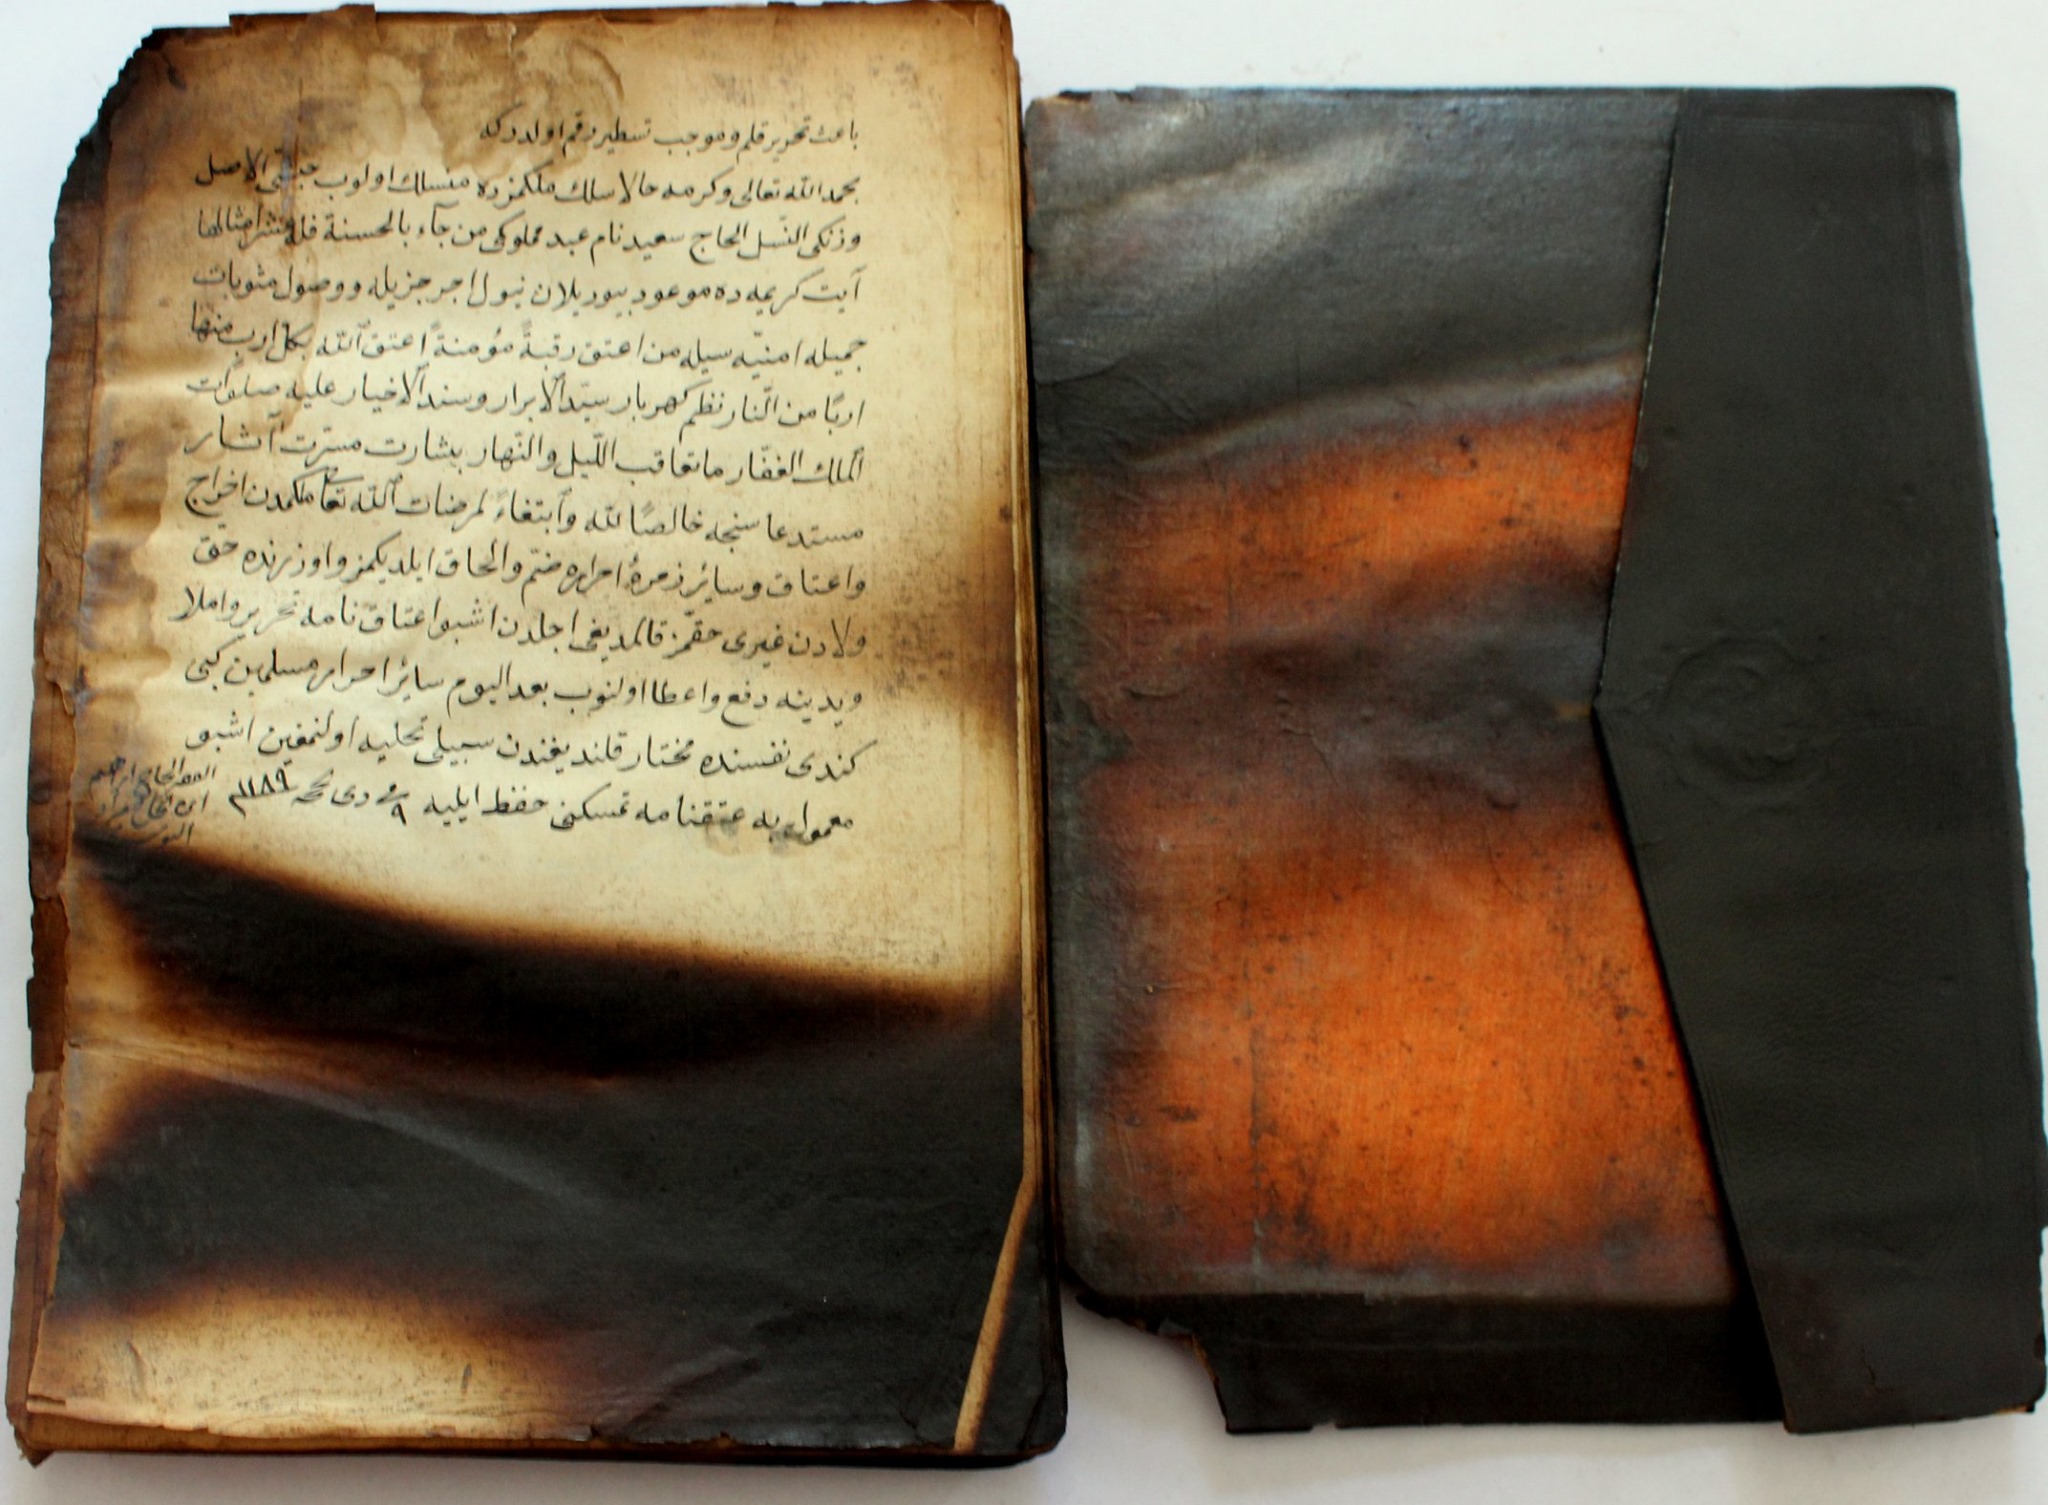 باعث تحرير قلم وموجب تسطير رقم اولدركه
بحمد الله تعالى وكرمه حالا سلك ملكمزده منسلك اولوب حبشى الاصل
وزنكى النسل الحاج سعيد نام عبد مملوكى من جآء بالحسنة فله عشر امثالها
آيت كريمه ده موعود بيوريلان نيول اجر جزيله ووصول مثوبات
جميله امنيّه سيله من اعتق رقبةً مؤمنةً اعتق الله بكلّ ارب منها
اربًا من النّار نظم كهربار سيّد الابرار وسند الاخيار عليه صلوات
الملك الغفّار ما تعاقب اللّيل والنّهار بشارت مسرّت آثار
مستدعاسنجه خالصًا لله وابتغاءً لمرضات الله تعا ملكمدن اخراج
واعتاق وسائر زمرهٔ احراره ضمّ والحاق ايلديكمز واوزرنده حق
ولادن غيرى حقّمز قالمديغى اجلدن اشبو اعتاق نامه تحرير واملا
ويدينه دفع واعطا اولنوب بعد اليوم سائر احرار مسلمين كبى
كندى نفسنده مختار قلنديغندن سبيلى تحليه اولنمغين اشبو
معمول به عتقنامه تمسكنى حفظ ايليه ٩ دى ١١٨٩
الحاج ابرهيم
ابن الحاج مراد